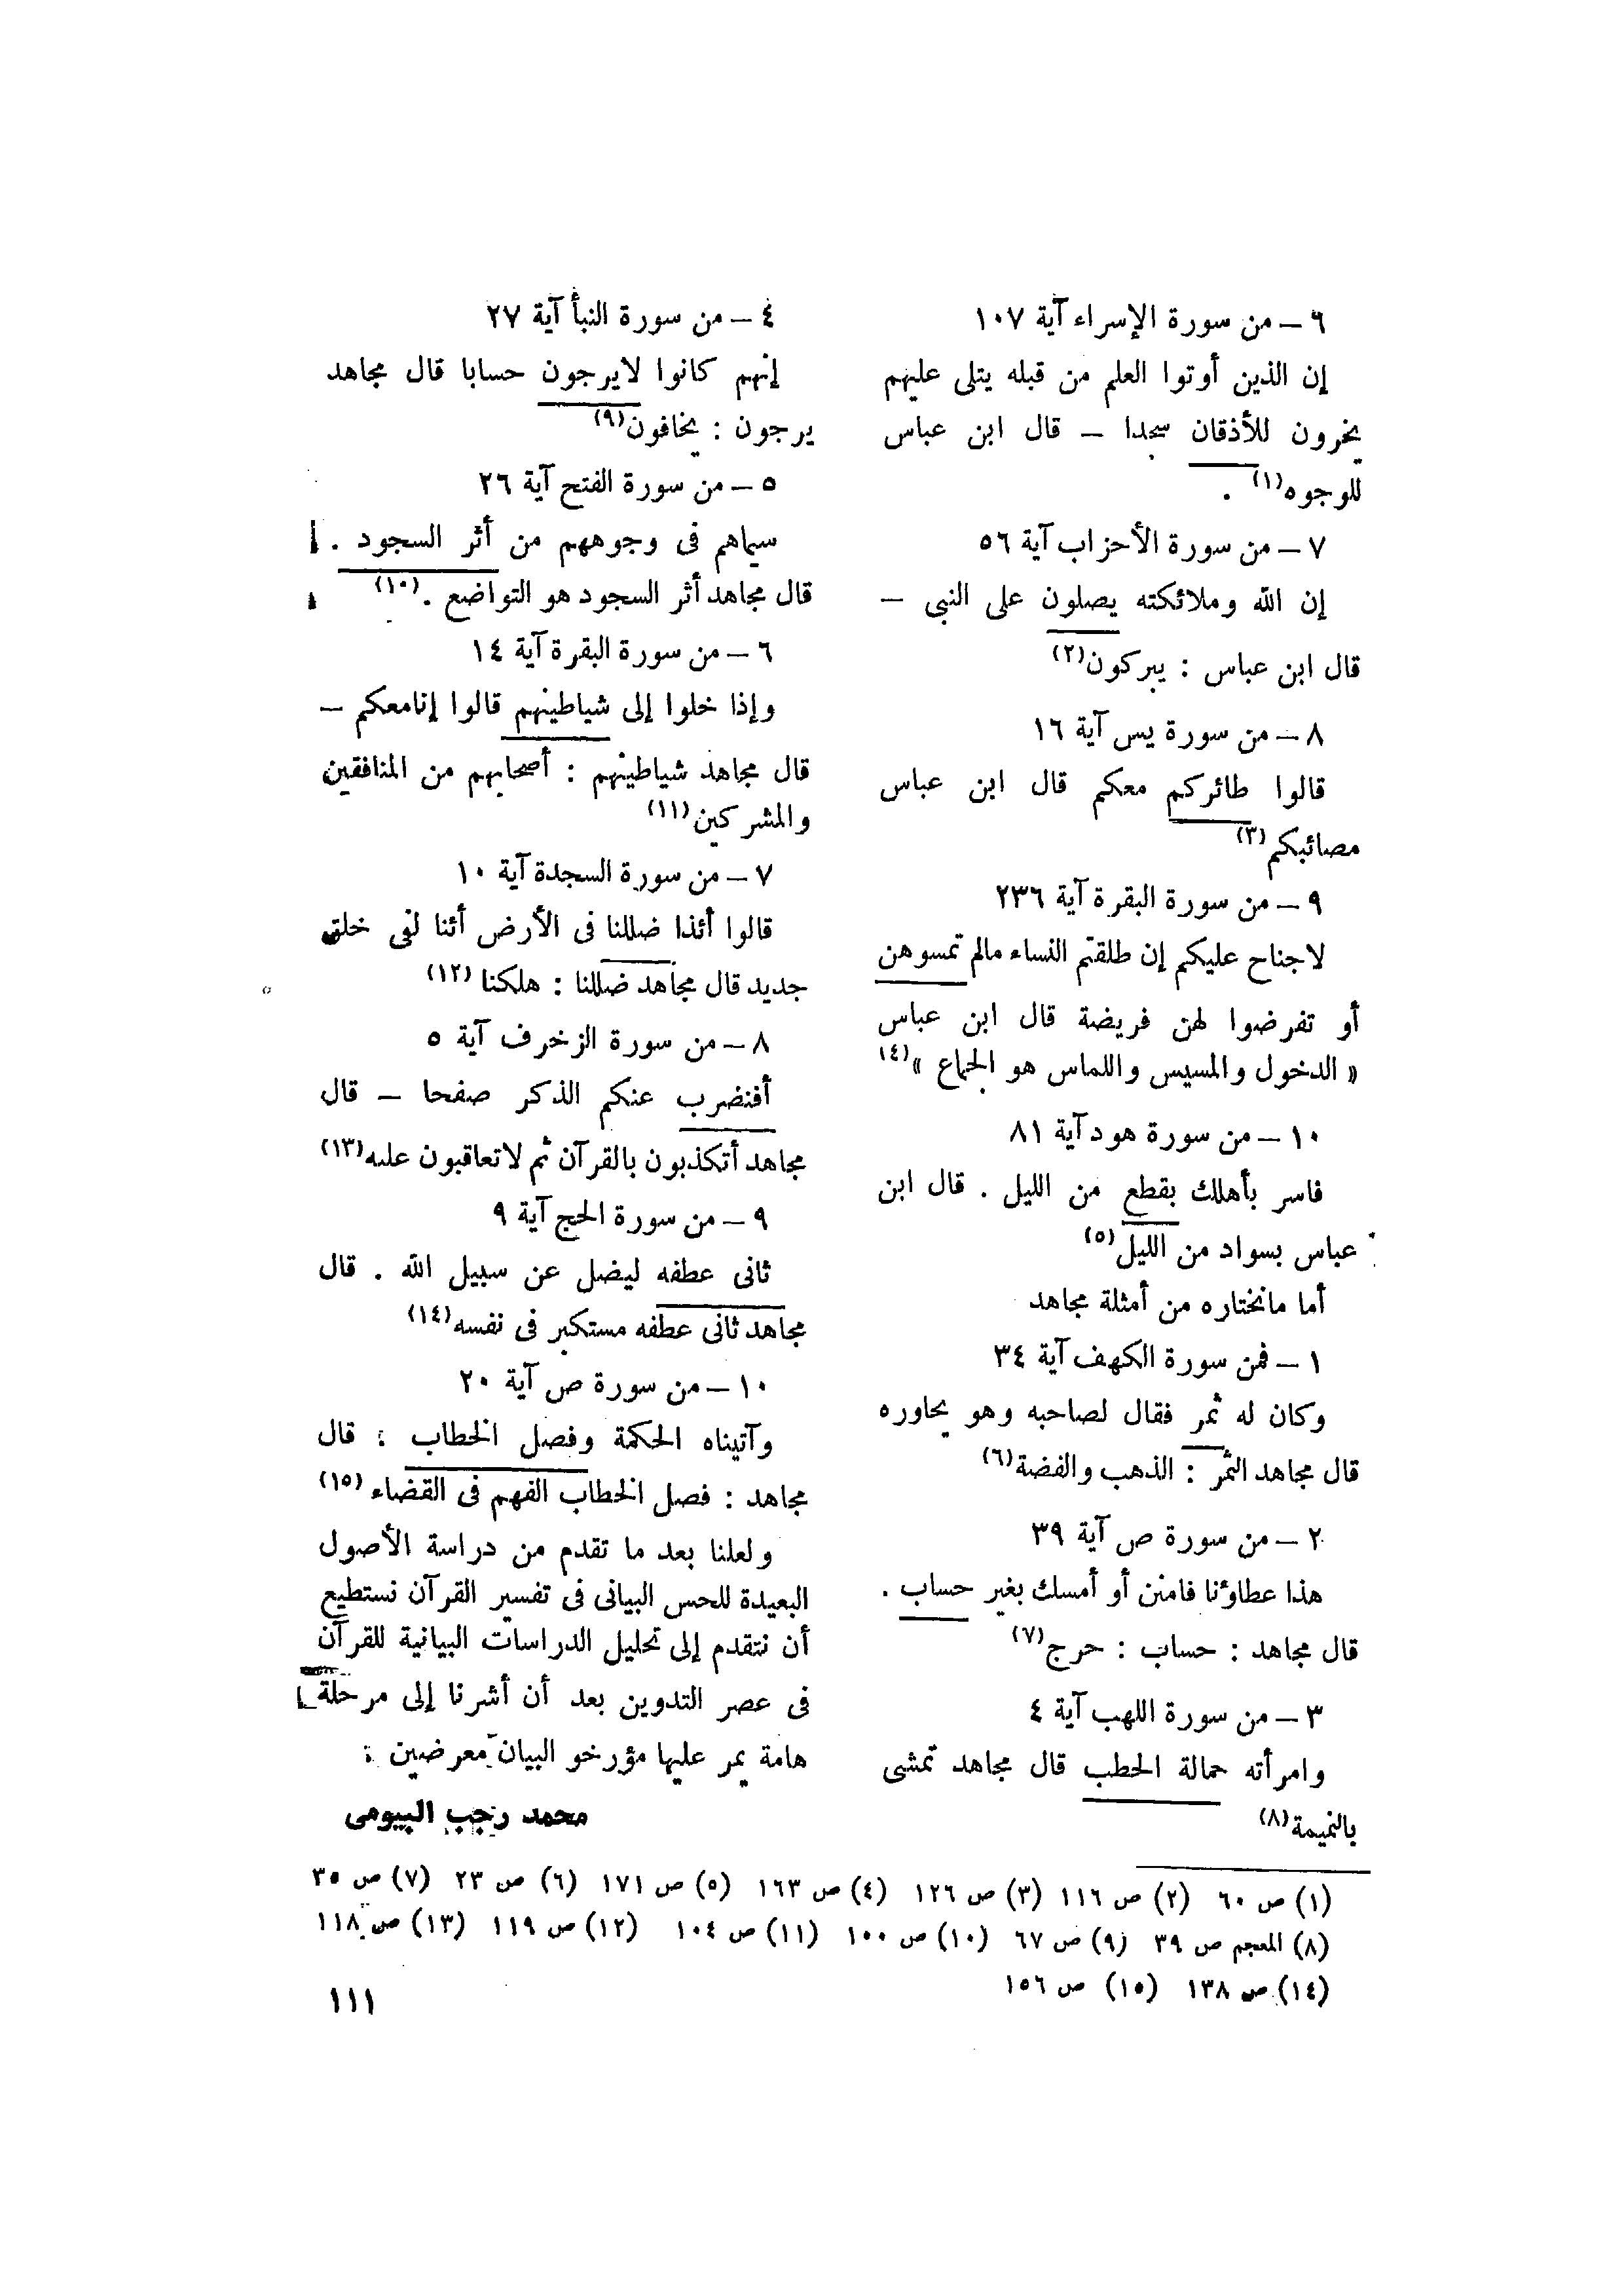 ٦ – من سورة الإسراء آية ١٠٧
إن الذين أوتوا العلم من قبله يتلى عليهم
يخرون للأذقان سجدا – قال ابن عباس
للوجوه(١) .
٧ – من سورة الأحزاب آية ٥٦
إن الله وملائكته يصلون على النبى –
قال ابن عباس : يبركون(٢)
٨ – من سورة يس آية ١٦
قالوا طائركم معكم قال ابن عباس
مصائبكم(٣)
٩ – من سورة البقرة آية ٢٣٦
لاجناح عليكم إن طلقتم النساء مالم تمسوهن
أو تفرضوا لهن فريضة قال ابن عباس
« الدخول والمسيس واللماس هو الجماع »(٤)
١٠ – من سورة هود آية ٨١
فاسر بأهلك بقطع من الليل . قال ابن
عباس بسواد من الليل(٥)
أما مانختاره من أمثلة مجاهد
١ – فمن سورة الكهف آية ٣٤
وكان له ثمر فقال لصاحبه وهو يحاوره
قال مجاهد الثمر : الذهب والفضة(٦)
٢ – من سورة ص آية ٣٩
هذا عطاؤنا فامنن أو أمسك بغير حساب .
قال مجاهد : حساب : حرج(٧)
٣ – من سورة اللهب آية ٤
وامرأته حمالة الحطب قال مجاهد تمشى
بالنميمة(٨)
٤ – من سورة النبأ آية ٢٧
إنهم كانوا لايرجون حسابا قال مجاهد
يرجون : يخافون(٩)
٥ – من سورة الفتح آية ٢٦
سيماهم فى وجوههم من أثر السجود .
قال مجاهد أثر السجود هو التواضع .(١٠)
٦ – من سورة البقرة آية ١٤
وإذا خلوا إلى شياطينهم قالوا إنامعكم –
قال مجاهد شياطينهم : أصحابهم من المنافقين
والمشركين(١١)
٧ – من سورة السجدة آية ١٠
قالوا أئذا ضللنا فى الأرض أئنا لفى خلق
جديد قال مجاهد ضللنا : هلكنا (١٢)
٨ – من سورة الزخرف آية ٥
أفنضرب عنكم الذكر صفحا – قال
مجاهد أتكذبون بالقرآن ثم لاتعاقبون عليه(١٣)
٩ – من سورة الحج آية ٩
ثانى عطفه ليضل عن سبيل الله . قال
مجاهد ثانى عطفه مستكبر فى نفسه(١٤)
١٠ – من سورة ص آية ٢٠
وآتيناه الحكمة وفصل الخطاب : قال
مجاهد : فصل الخطاب الفهم فى القضاء (١٥)
ولعلنا بعد ما تقدم من دراسة الأصول
البعيدة للحس البيانى فى تفسير القرآن نستطيع
أن نتقدم إلى تحليل الدراسات البيانية للقرآن
فى عصر التدوين بعد أن أشرنا إلى مرحلة
هامة يمر عليها مؤرخو البيان معرضين :
محمد رجب البيومى
(١) ص ٦٠ (٢) ص ١١٦ (٣) ص ١٢٦ (٤) ص ١٦٣ (٥) ص ١٧١ (٦) ص ٢٣ (٧) ص ٣٥
(٨) المعجم ص ٣٩ (٩) ص ٦٧ (١٠) ص ١٠٠ (١١) ص ١٠٤ (١٢) ص ١١٩ (١٣) ص ١١٨
(١٤) ص ١٣٨ (١٥) ص ١٥٦
١١١